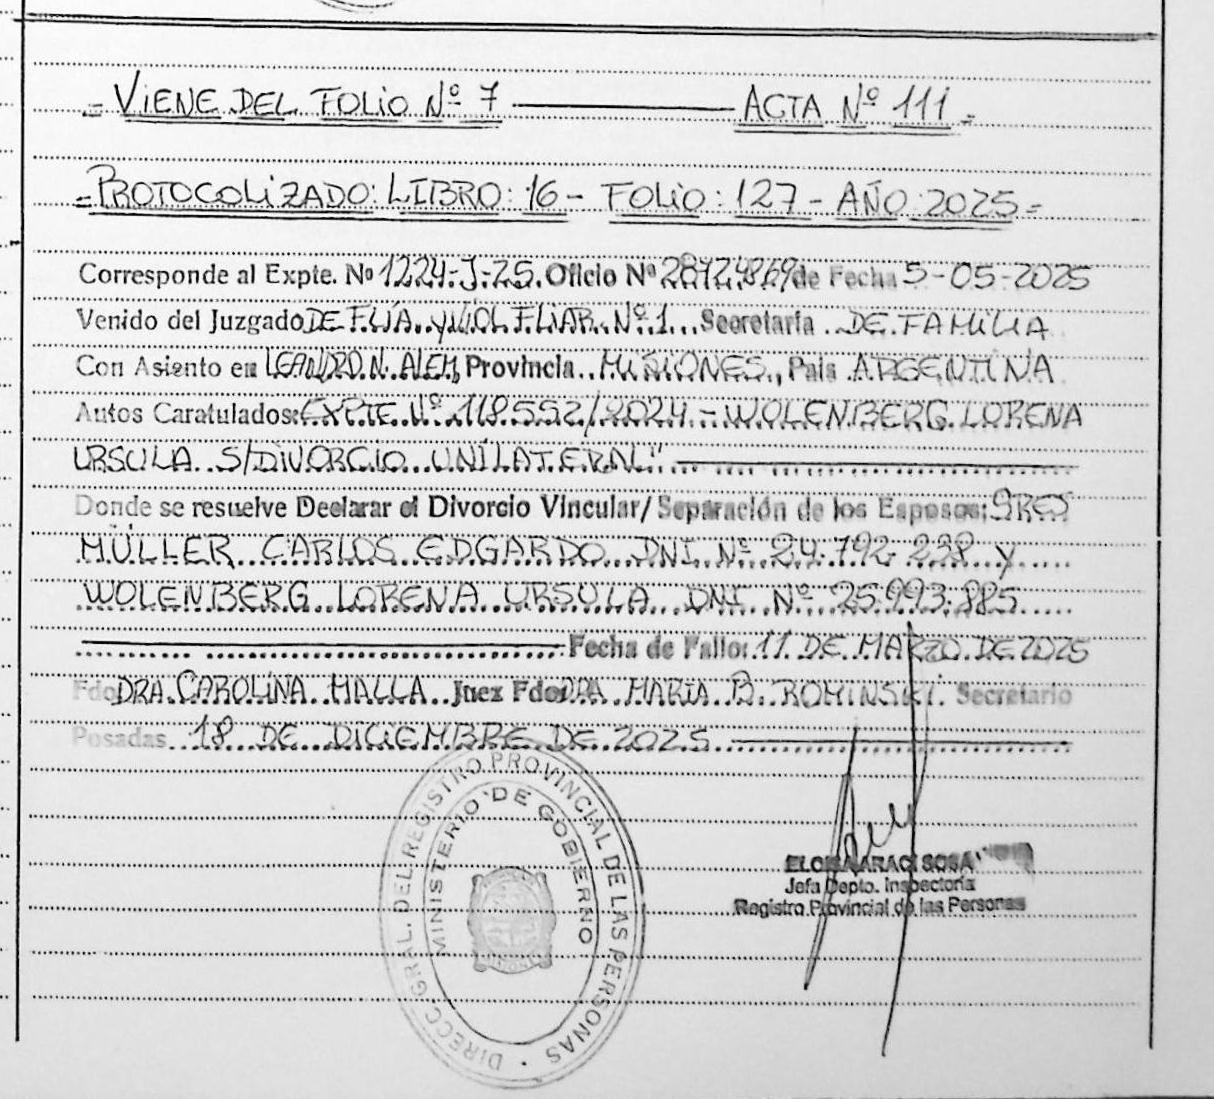 = VIENE DEL FOLIO Nº 7 ——— ACTA Nº 111 =
= PROTOCOLIZADO: LIBRO: 16 - FOLIO: 127 - AÑO 2025 =
Corresponde al Expte. Nº 1224-J-25. Oficio Nº 28124869 de Fecha 5-05-2025
Venido del Juzgado DE FLIA. y VIOL FLIAR. Nº 1... Secretaría. DE. FAMILIA
Con Asiento en LEANDRO. N. ALEM, Provincia.. MISIONES., País ARGENTINA
Autos Caratulados: EXPTE. Nº 118552/2024. - WOLENBERG. LORENA
URSULA. S/DIVORCIO.. UNILATERAL"
Donde se resuelve Declarar el Divorcio Vincular/ Separación de los Esposos: SRES
MÜLLER CARLOS EDGARDO. DNI. Nº 24.792.238 y
WOLENBERG. LORENA URSULA DNI Nº 25.993.885
Fecha de Fallo: 11 DE MARZO DE 2025
Fdo DRA. CAROLINA MALLA.. Juez Fdo DRA MARIA B. ROMINSKI. Secretario
Posadas.. 18.. DE.. DICIEMBRE DE 2025
DIRECC. GRAL. DEL REGISTRO PROVINCIAL DE LAS PERSONAS
MINISTERIO DE GOBIERNO
ARACI SOSA
Jefa Depto. Inspectoría
Registro Provincial de las Personas